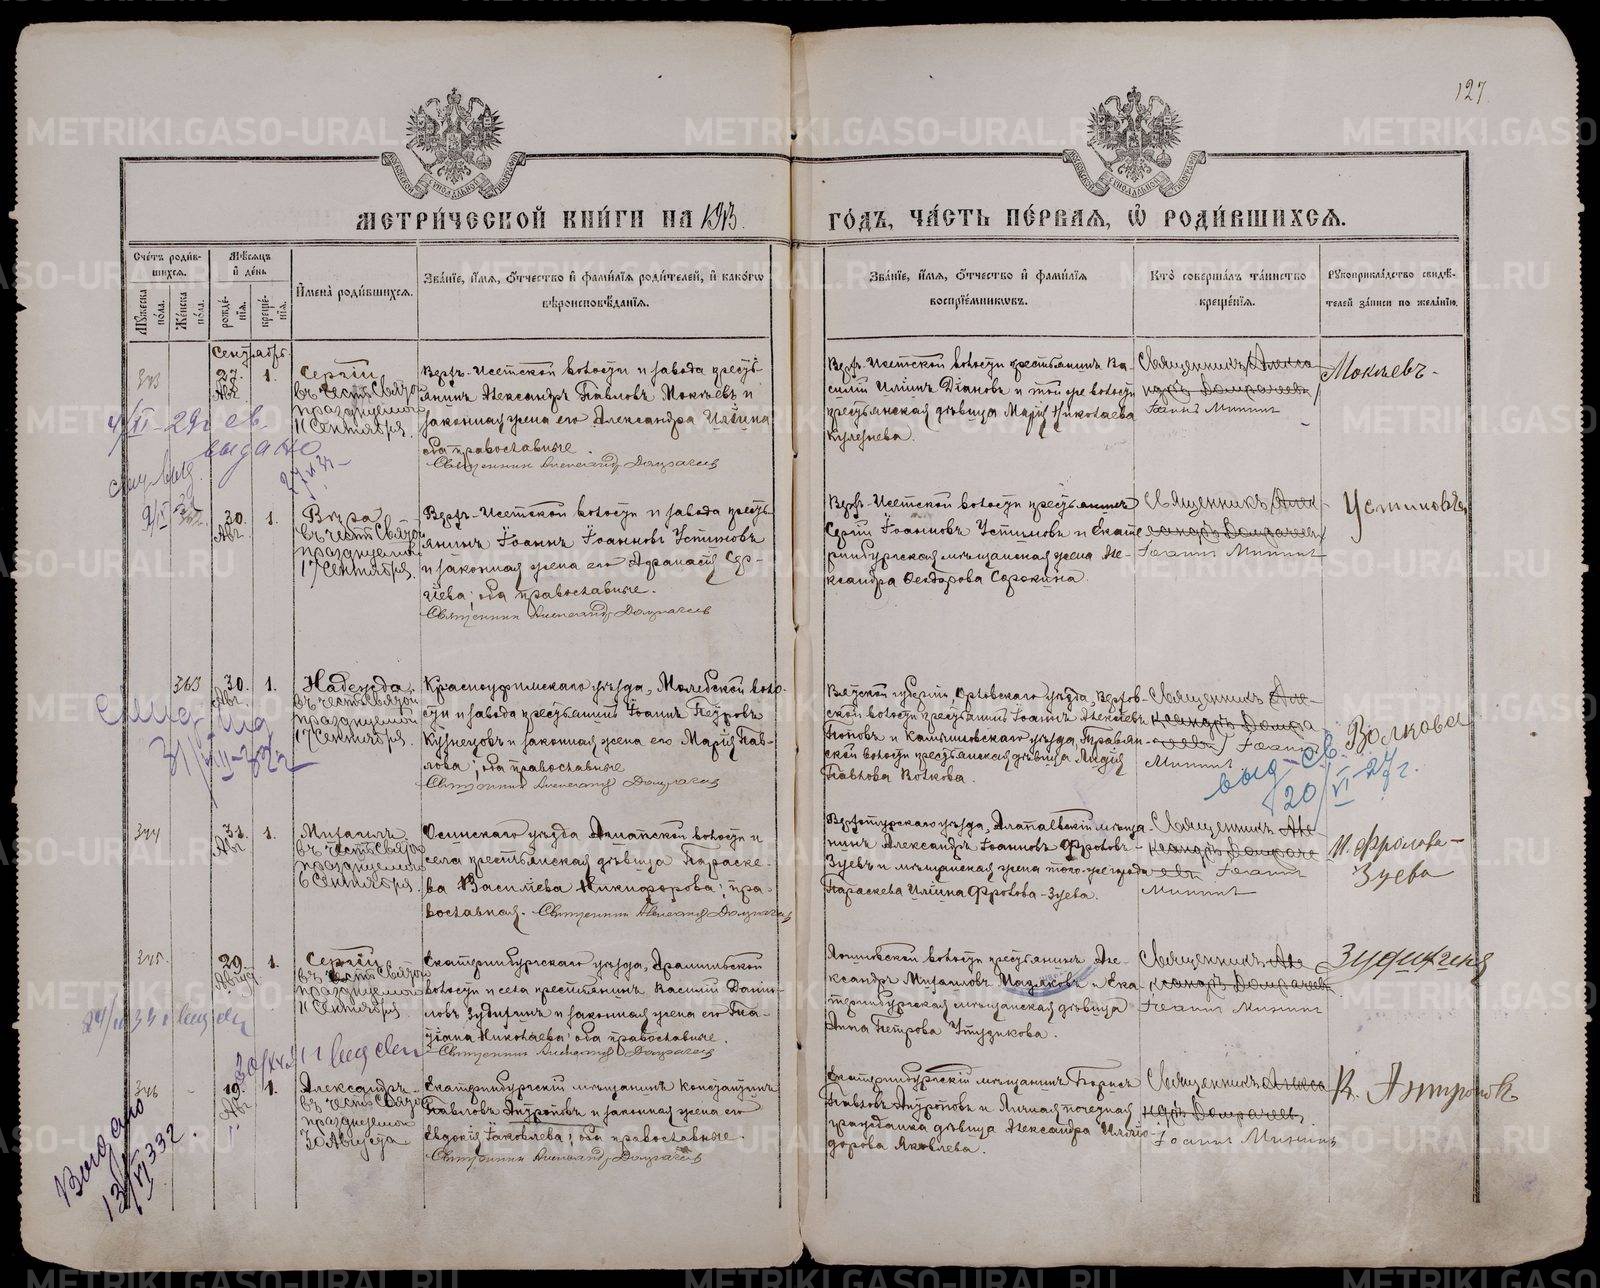 127
МЕТРИ́ЧЕСКОЙ КНИ́ГИ НА 1913.
ГО́ДЪ, ЧА́СТЬ ПЕ́РВАЯ, Ѡ РОДИ́ВШИХСЯ.
Сче́тъ роди́в-
шихся.
Му́жеска по́ла.
Же́нска по́ла.
Мѣ́сяцъ и́ де́нь
рожде́-
нія.
креще́-
нія.
И́мена̀ роди́вшихся.
Зва́ніе, и́мя, о́тчество и́ фами́лія роди́телей, и́ како́гѡ
вѣроисповѣ́данія.
Зва́ніе, и́мя, о́тчество и́ фами́лія
воспріе́мниковъ.
Кто̀ соверша́лъ та́инство
креще́нія.
Рꙋкоприкла́дство свидѣ́-
телей за́писи по жела́нію.
Сентябрь
343
27.
Авг.
1.
Сергій
въ честь Святого
празднуемаго
11 Сентября.
Верх-Исетской волости и завода кресть-
янинъ Александръ Павловъ Мокѣевъ и
законная жена его Александра Ильина
оба православные.
Священникъ Александръ Домрачевъ
Верх-Исетской волости крестьянинъ Ва-
силій Ильинъ Діановъ и той же волости
крестьянская дѣвица Марія Николаева
Кулезнева.
Священникъ Алекса-
ндръ Домрачевъ
Іоаннъ Мининъ
Мокѣевъ
30.
Авг.
1.
Вѣра
въ честь Святой
празднуемой
17 Сентября.
Верх-Исетской волости и завода кресть-
янинъ Іоаннъ Іоанновъ Устиновъ
и законная жена его Афанасія Сер-
гіева; оба православные.
Священникъ Александръ Домрачевъ
Верх-Исетской волости крестьянинъ
Сергій Іоанновъ Устиновъ и Екате-
ринбургская мѣщанская жена Але-
ксандра Феодорова Сорокина.
Священникъ Алек-
сандръ Домрачевъ
Іоаннъ Мининъ
Устиновъ
363
30.
Авг.
1.
Надежда
въ честь Святой
празднуемой
17 Сентября.
Красноуфимскаго уѣзда, Молебской воло-
сти и завода крестьянинъ Іоаннъ Петровъ
Кузнецовъ и законная жена его Марія Пав-
лова; оба православные
Священникъ Александръ Домрачевъ
Вятской губерніи Орловскаго уѣзда, Верхов-
ской волости крестьянинъ Іоаннъ Алексѣевъ
Поповъ и Камышловскаго уѣзда, Куравлян-
ской волости крестьянская дѣвица Лидія
Павлова Волкова.
Священникъ Але-
ксандръ Домра-
чевъ Іоаннъ
Мининъ
Волкова
выд. св.
20/VI-27 г.
344
31.
Авг.
1.
Михаилъ
въ честь Святого
празднуемаго
6 Сентября.
Осинскаго уѣзда Аннинской волости и
села крестьянская дѣвица Параске-
ва Васильева Никифорова; пра-
вославная. Священникъ Александръ Домрачевъ
Верхотурскаго уѣзда, Алапаевскій мѣща-
нинъ Александръ Іоанновъ Фролова-
Зуевъ и мѣщанская жена того же города
Параскева Ильина Фролова-Зуева.
Священникъ Але-
ксандръ Домраче-
въ Іоаннъ
Мининъ
И. Фролова-
Зуева
345
29.
Август
1.
Сергій
въ честь Святого
празднуемаго
11 Сентября.
Екатеринбургскаго уѣзда, Арамильской
волости и села крестьянинъ Василій Даніи-
ловъ Зудихинъ и законная жена его Та-
тіана Николаева; оба православные.
Священникъ Александръ Домрачевъ
волости крестьянинъ Але-
ксандръ Михаиловъ Мазяковъ и Ека-
теринбургская мѣщанская дѣвица
Анна Петрова Студикова.
Священникъ Але-
ксандръ Домрачевъ
Іоаннъ Мининъ
346
19.
Авг.
1.
Александръ
въ честь Святого
празднуемаго
30 Августа
Екатеринбургскій мѣщанинъ Константинъ
Павловъ Антроповъ и законная жена его
Евдокія Іаковлева; оба православные.
Священникъ Александръ Домрачевъ
Екатеринбургскій мѣщанинъ Борисъ
Павловъ Антроповъ и Личная почетная
гражданка дѣвица Александра Иллio-
дорова Яковлева.
Священникъ Алекса-
ндръ Домрачевъ
Іоаннъ Мининъ
К. Антроповъ
Выдано
13/VI 332
METRIKI.GASO-URAL.RU